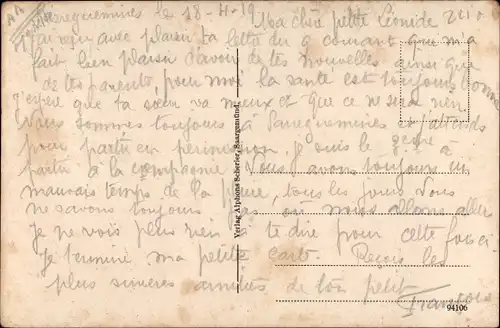 Sarreguemines le 18-4-19
Ma chère petite Léonide
J'ai reçu avec plaisir ta lettre du 6 courant que m'a
fait bien plaisir d'avoir de tes nouvelles ainsi que
de tes parents, pour moi la santé est toujours bonne
j'espère que ta sœur va mieux et que ce ne sera rien
Nous sommes toujours à Sarreguemines et j'attends
pour partir en permission, je suis le
partir à la compagnie Nous avons toujours un
mauvais temps de la pluie, tous les jours Nous
ne savons toujours pas où nous allons aller
Je ne vois plus rien à te dire pour cette fois ci
Je termine ma petite carte. Reçois les
plus sincères amitiés de ton petit
François
Verlag Alphons Scherier, Saargemünd.
94106